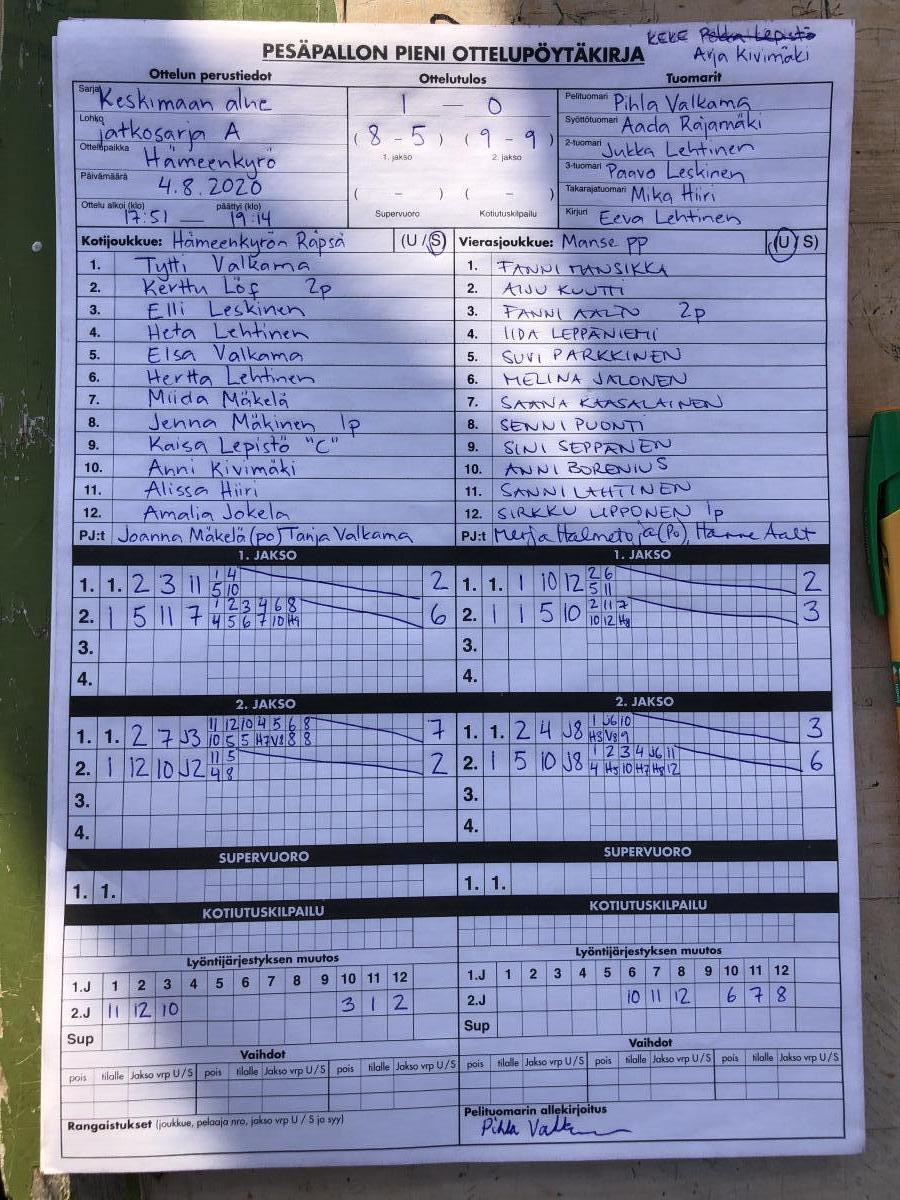 KEKE Pekka Lepistö
PESÄPALLON PIENI OTTELUPÖYTÄKIRJA Arja Kivimäki
Ottelun perustiedot Ottelutulos Tuomarit
Sarja Keskimaan alue 1 — 0 Pelituomari Pihla Valkama
Lohko jatkosarja A (8 - 5) (9 - 9) Syöttötuomari Aada Rajamäki
1. jakso 2. jakso
Ottelupaikka Hämeenkyrö 2-tuomari Jukka Lehtinen
Päivämäärä 4.8.2020 ( - ) ( - ) 3-tuomari Paavo Leskinen
Takarajatuomari Mika Hiiri
Ottelu alkoi (klo) 17:51 — päättyi (klo) 19:14 Supervuoro Kotiutuskilpailu Kirjuri Eeva Lehtinen
Kotijoukkue: Hämeenkyrön Räpsä (U / S) Vierasjoukkue: Manse pp (U / S)
1. Tytti Valkama 1. FANNI MANSIKKA
2. Kerttu Löf 2p 2. AIJU KUUTTI
3. Elli Leskinen 3. FANNI AALTO 2p
4. Heta Lehtinen 4. IIDA LEPPÄNIEMI
5. Elsa Valkama 5. SUVI PARKKINEN
6. Hertta Lehtinen 6. MELINA JALONEN
7. Miida Mäkelä 7. SAANA KAASALAINEN
8. Jenna Mäkinen 1p 8. SENNI PUONTI
9. Kaisa Lepistö "C" 9. SINI SEPPÄNEN
10. Anni Kivimäki 10. ANNI BORENIUS
11. Alissa Hiiri 11. SANNI LAHTINEN
12. Amalia Jokela 12. SIRKKU LIPPONEN 1p
PJ:t Joanna Mäkelä (po) Tanja Valkama PJ:t Merja Halmetoja (Po), Hanne Aalt
1. JAKSO 1. JAKSO
1. 1. 2 3 11 1 4 2 1. 1. 1 10 12 2 6 2
5 10 5 11
2. 1 5 11 7 1 2 3 4 6 8 6 2. 1 1 5 10 2 11 7 3
4 5 6 7 10 H9 10 12 H8
3. 3.
4. 4.
2. JAKSO 2. JAKSO
1. 1. 2 7 J3 11 12 10 4 5 6 8 7 1. 1. 2 4 J8 1 J6 10 3
10 5 5 H7 V8 8 8 H3 V8 9
2. 1 12 10 J2 11 5 2 2. 1 5 10 J8 1 2 3 4 J6 11 6
4 8 4 H5 10 H7 H8 12
3. 3.
4. 4.
SUPERVUORO SUPERVUORO
1. 1. 1. 1.
KOTIUTUSKILPAILU KOTIUTUSKILPAILU
Lyöntijärjestyksen muutos Lyöntijärjestyksen muutos
1.J 1 2 3 4 5 6 7 8 9 10 11 12 1.J 1 2 3 4 5 6 7 8 9 10 11 12
2.J 11 12 10 3 1 2 2.J 10 11 12 6 7 8
Sup Sup
Vaihdot Vaihdot
pois tilalle Jakso vrp U / S pois tilalle Jakso vrp U / S pois tilalle Jakso vrp U / S pois tilalle Jakso vrp U / S pois tilalle Jakso vrp U / S pois tilalle Jakso vrp U / S
Rangaistukset (joukkue, pelaaja nro, jakso vrp U / S ja syy) Pelituomarin allekirjoitus
Pihla Valk